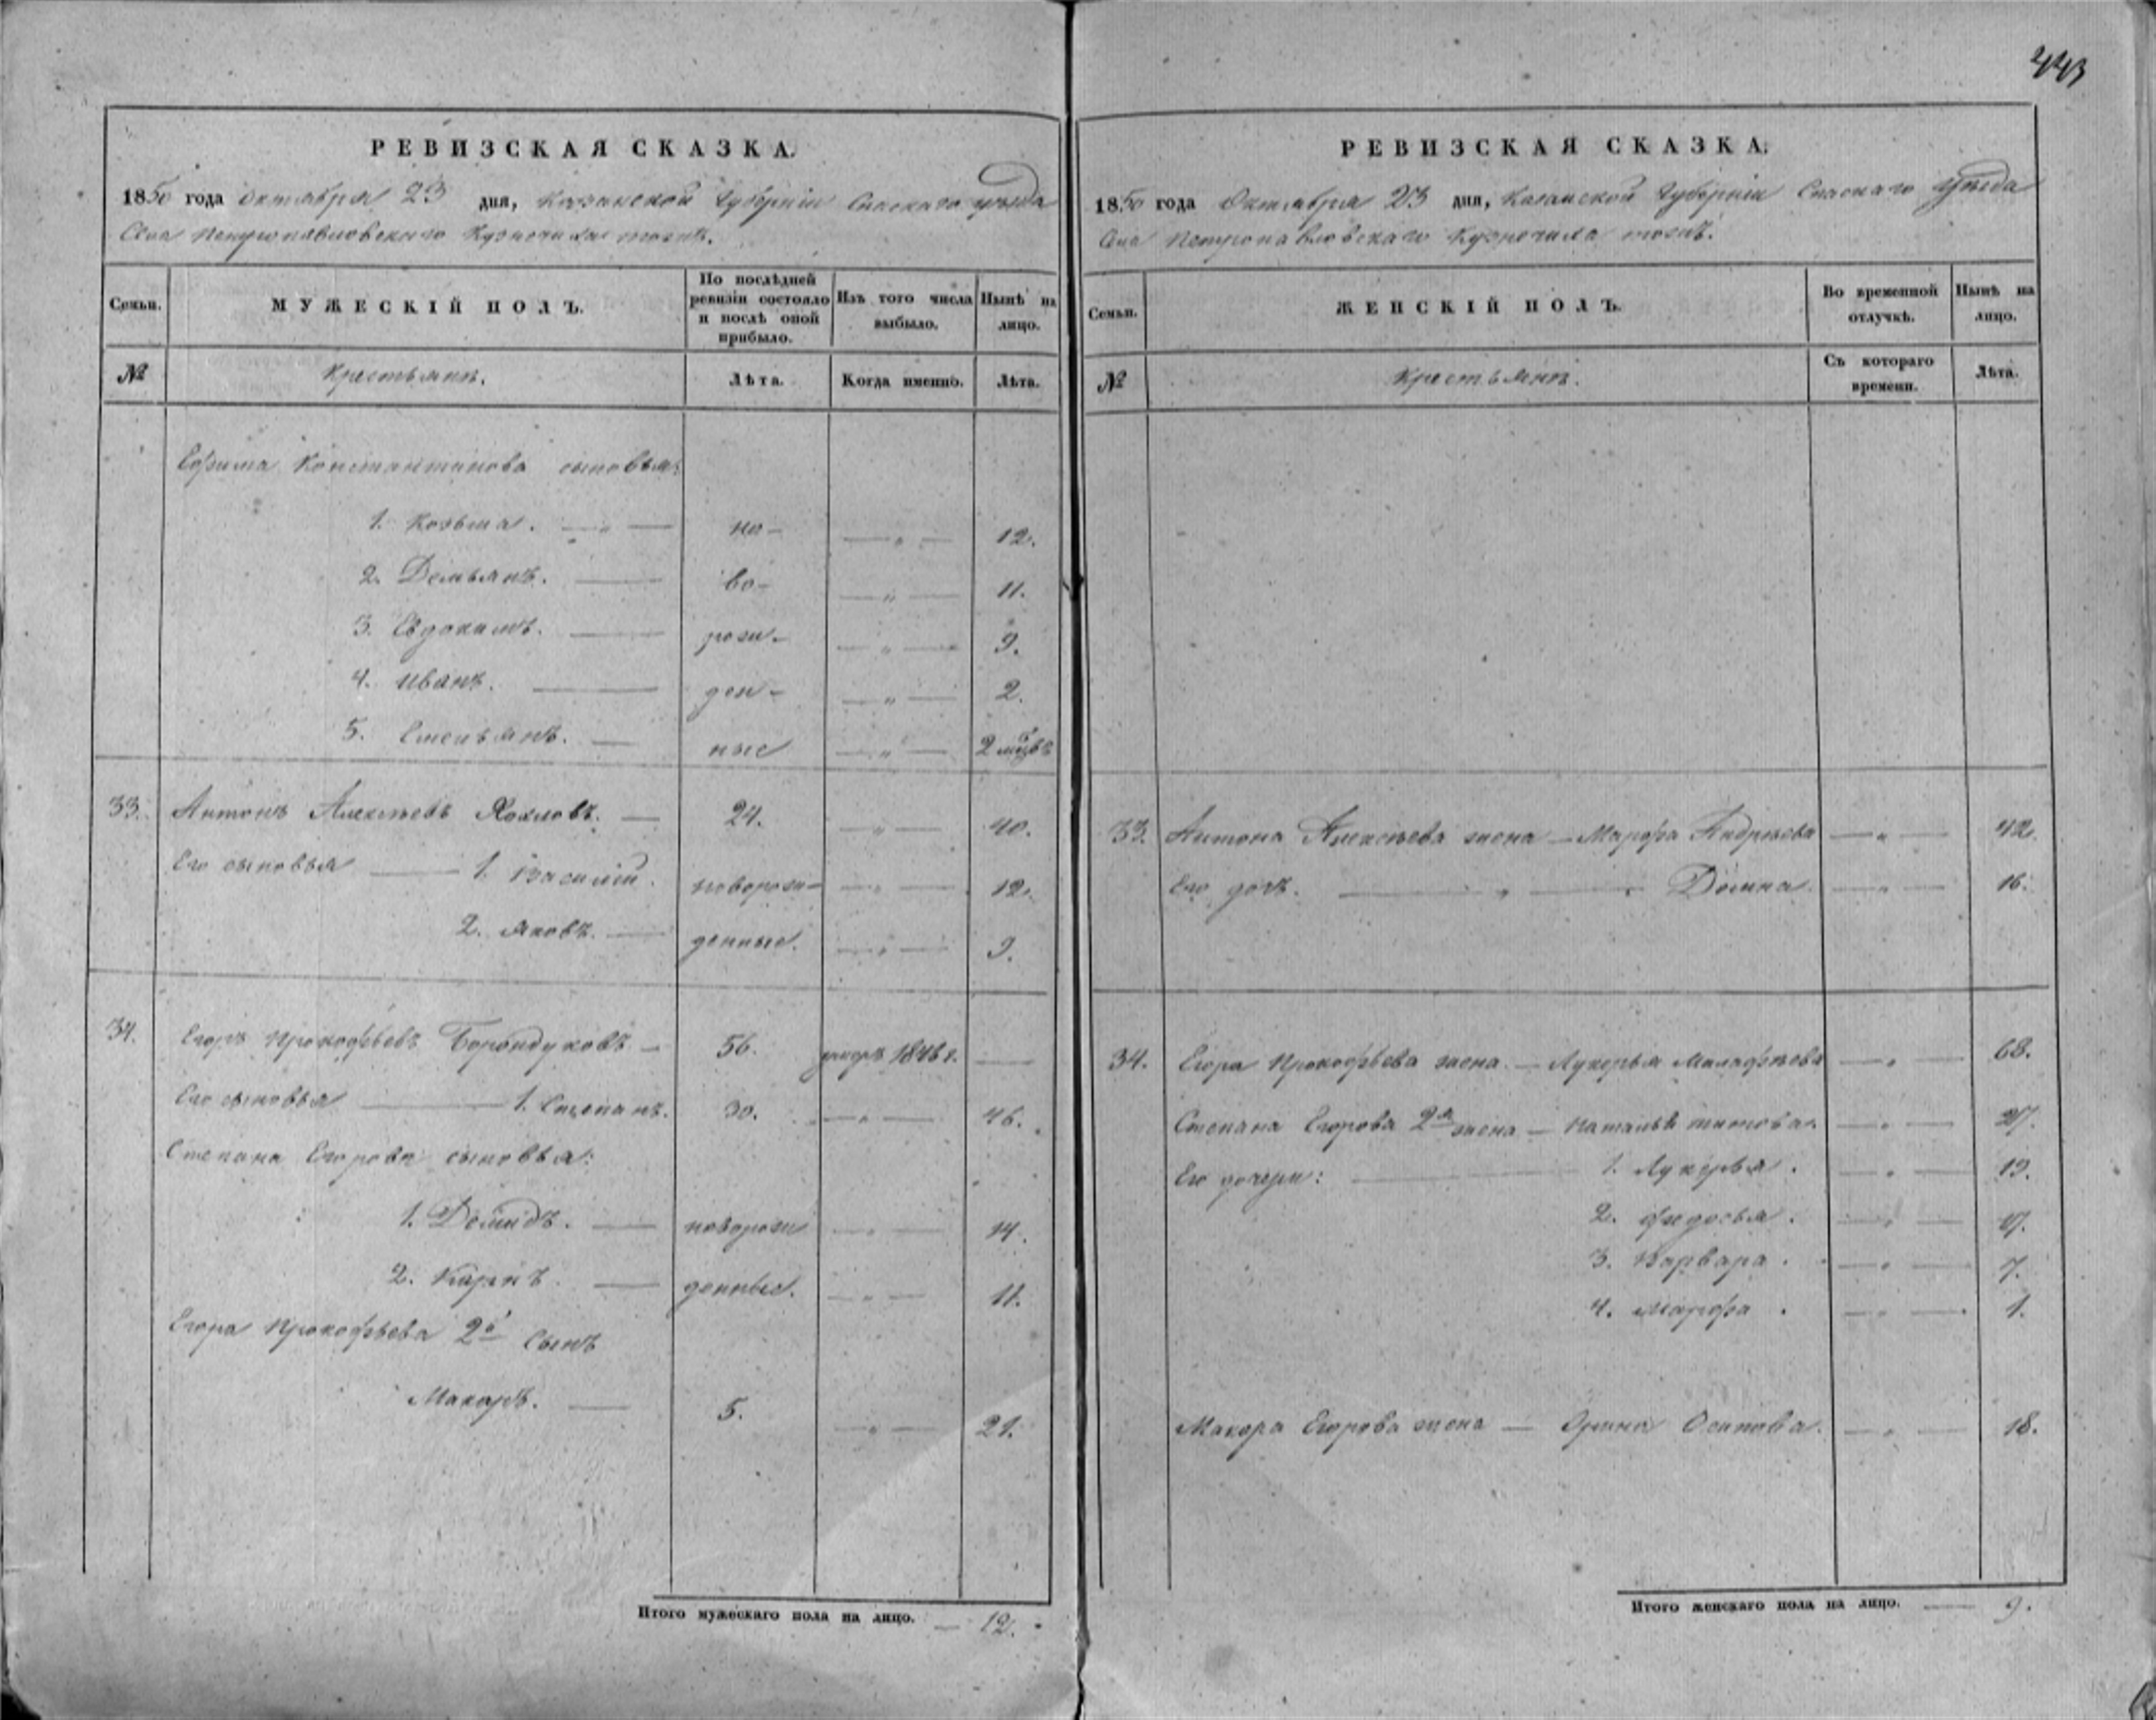 443
РЕВИЗСКАЯ СКАЗКА.
1850 года Октября 23 дня, Казанской Губерніи Спаскаго уѣзда
Села Петропавловскаго Кузнечиха тожъ.
Семьи.
МУЖЕСКІЙ ПОЛЪ.
По послѣдней ревизіи состояло и послѣ оной прибыло.
Изъ того числа выбыло.
Нынѣ на лицо.
№
Крестьянъ.
Лѣта.
Когда именно.
Лѣта.
Ефима Константинова сыновья:
1. Козьма. — но- — „ — 12.
2. Демьянъ. — во- — „ — 11.
3. Евдокимъ. — рож- — „ — 9.
4. Иванъ. — ден- — „ — 2.
5. Емельянъ. — ные — „ — 2
33. Антонъ Алексѣевъ Хохловъ. — 24. — „ — 40.
Его сыновья — 1. Василій. новорож- — „ — 12.
2. Яковъ. — денные. — „ — 9.
34. Егоръ Прокофьевъ Борондуковъ — 56. умеръ 1846 г. —
Его сыновья — 1. Степанъ. 30. — „ — 46.
Степана Егорова сыновья:
1. Демидъ. — новорож — „ — 14.
2. Карпъ. — денные. — „ — 11.
Егора Прокофьева 2й Сынъ
Макаръ. — 5. — „ — 21.
Итого мужескаго пола на лицо. — 12.
РЕВИЗСКАЯ СКАЗКА.
1850 года Октября 23 дня, Казанской Губерніи Спаскаго Уѣзда
Села Петропавловскаго Кузнечиха тожъ.
Семьи.
ЖЕНСКІЙ ПОЛЪ.
Во временной отлучкѣ.
Нынѣ на лицо.
№
Крестьянъ.
Съ котораго времени.
Лѣта.
33. Антона Алексѣева жена — Марфа Андрѣева — „ — 42.
Его дочь. — „ — Домна. — „ — 16.
34. Егора Прокофьева жена. — Лукерья Малафѣева — „ — 68.
Степана Егорова 2я жена — Наталья Титова. — „ —
Его дочери: — 1. Лукерья. — „ —
2. Федосья. — „ —
3. Варвара. — „ — 7.
4. Марфа. — „ — 1.
Макора Егорова жена — Орина Осипова. — „ — 18.
Итого женскаго пола на лицо. — 9.